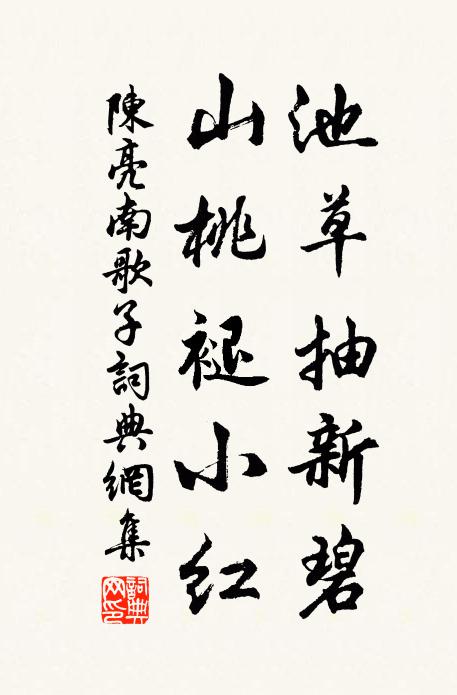 池草抽新碧
山桃褪小红
陳亮南歌子詞典網集
詞典網印